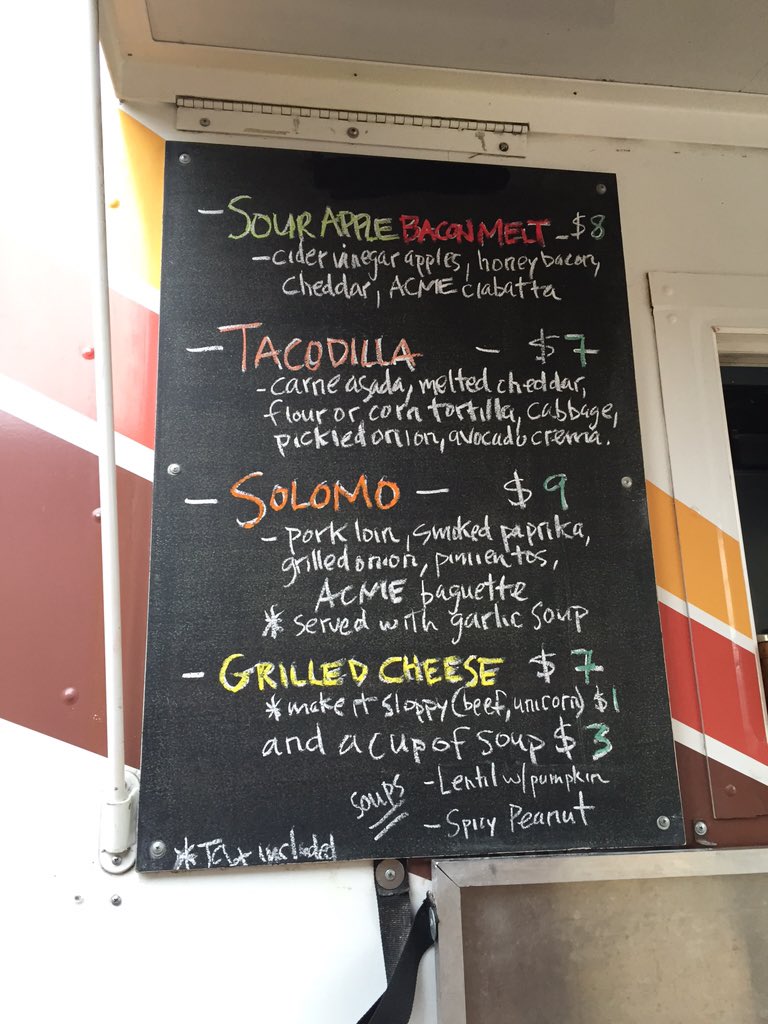 - SOUR APPLE BACON MELT - $8
- cider vinegar apples, honey bacon,
cheddar, ACME ciabatta
- TACODILLA - $7
- carne asada, melted cheddar,
flour or corn tortilla, cabbage,
pickled onion, avocado crema.
- SOLOMO - $9
- pork loin, smoked paprika,
grilled onion, pimientos,
ACME baguette
* served with garlic soup
- GRILLED CHEESE $7
* make it sloppy (beef, unicorn) $1
and a cup of soup $3
soups - Lentil w/ pumpkin
- Spicy Peanut
* Tax included